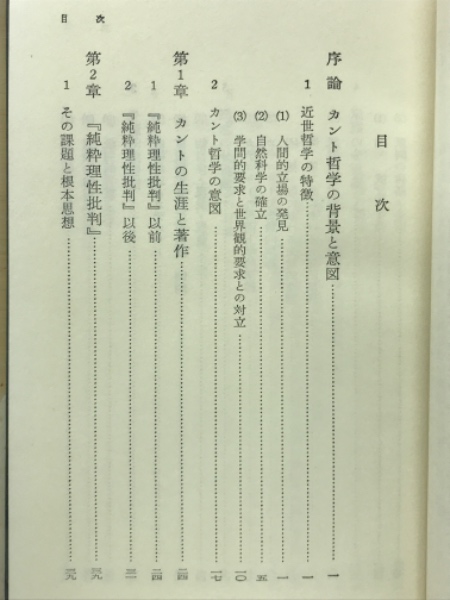 目次
目次
序論 カント哲学の背景と意図……一
1 近世哲学の特徴……一
(1) 人間的立場の発見……一
(2) 自然科学の確立……五
(3) 学問的要求と世界観的要求との対立……一〇
2 カント哲学の意図……一七
第1章 カントの生涯と著作……二四
1 『純粋理性批判』以前……二四
2 『純粋理性批判』以後……三一
第2章 『純粋理性批判』……三九
1 その課題と根本思想……三九